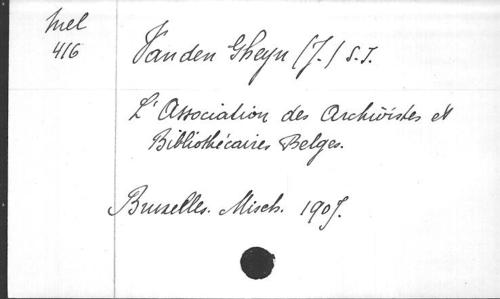 Mel
416
Van den Gheyn (J.) S.J.
L'Association des Archivistes et
Bibliothécaires Belges.
Bruxelles. Misch. 1907.